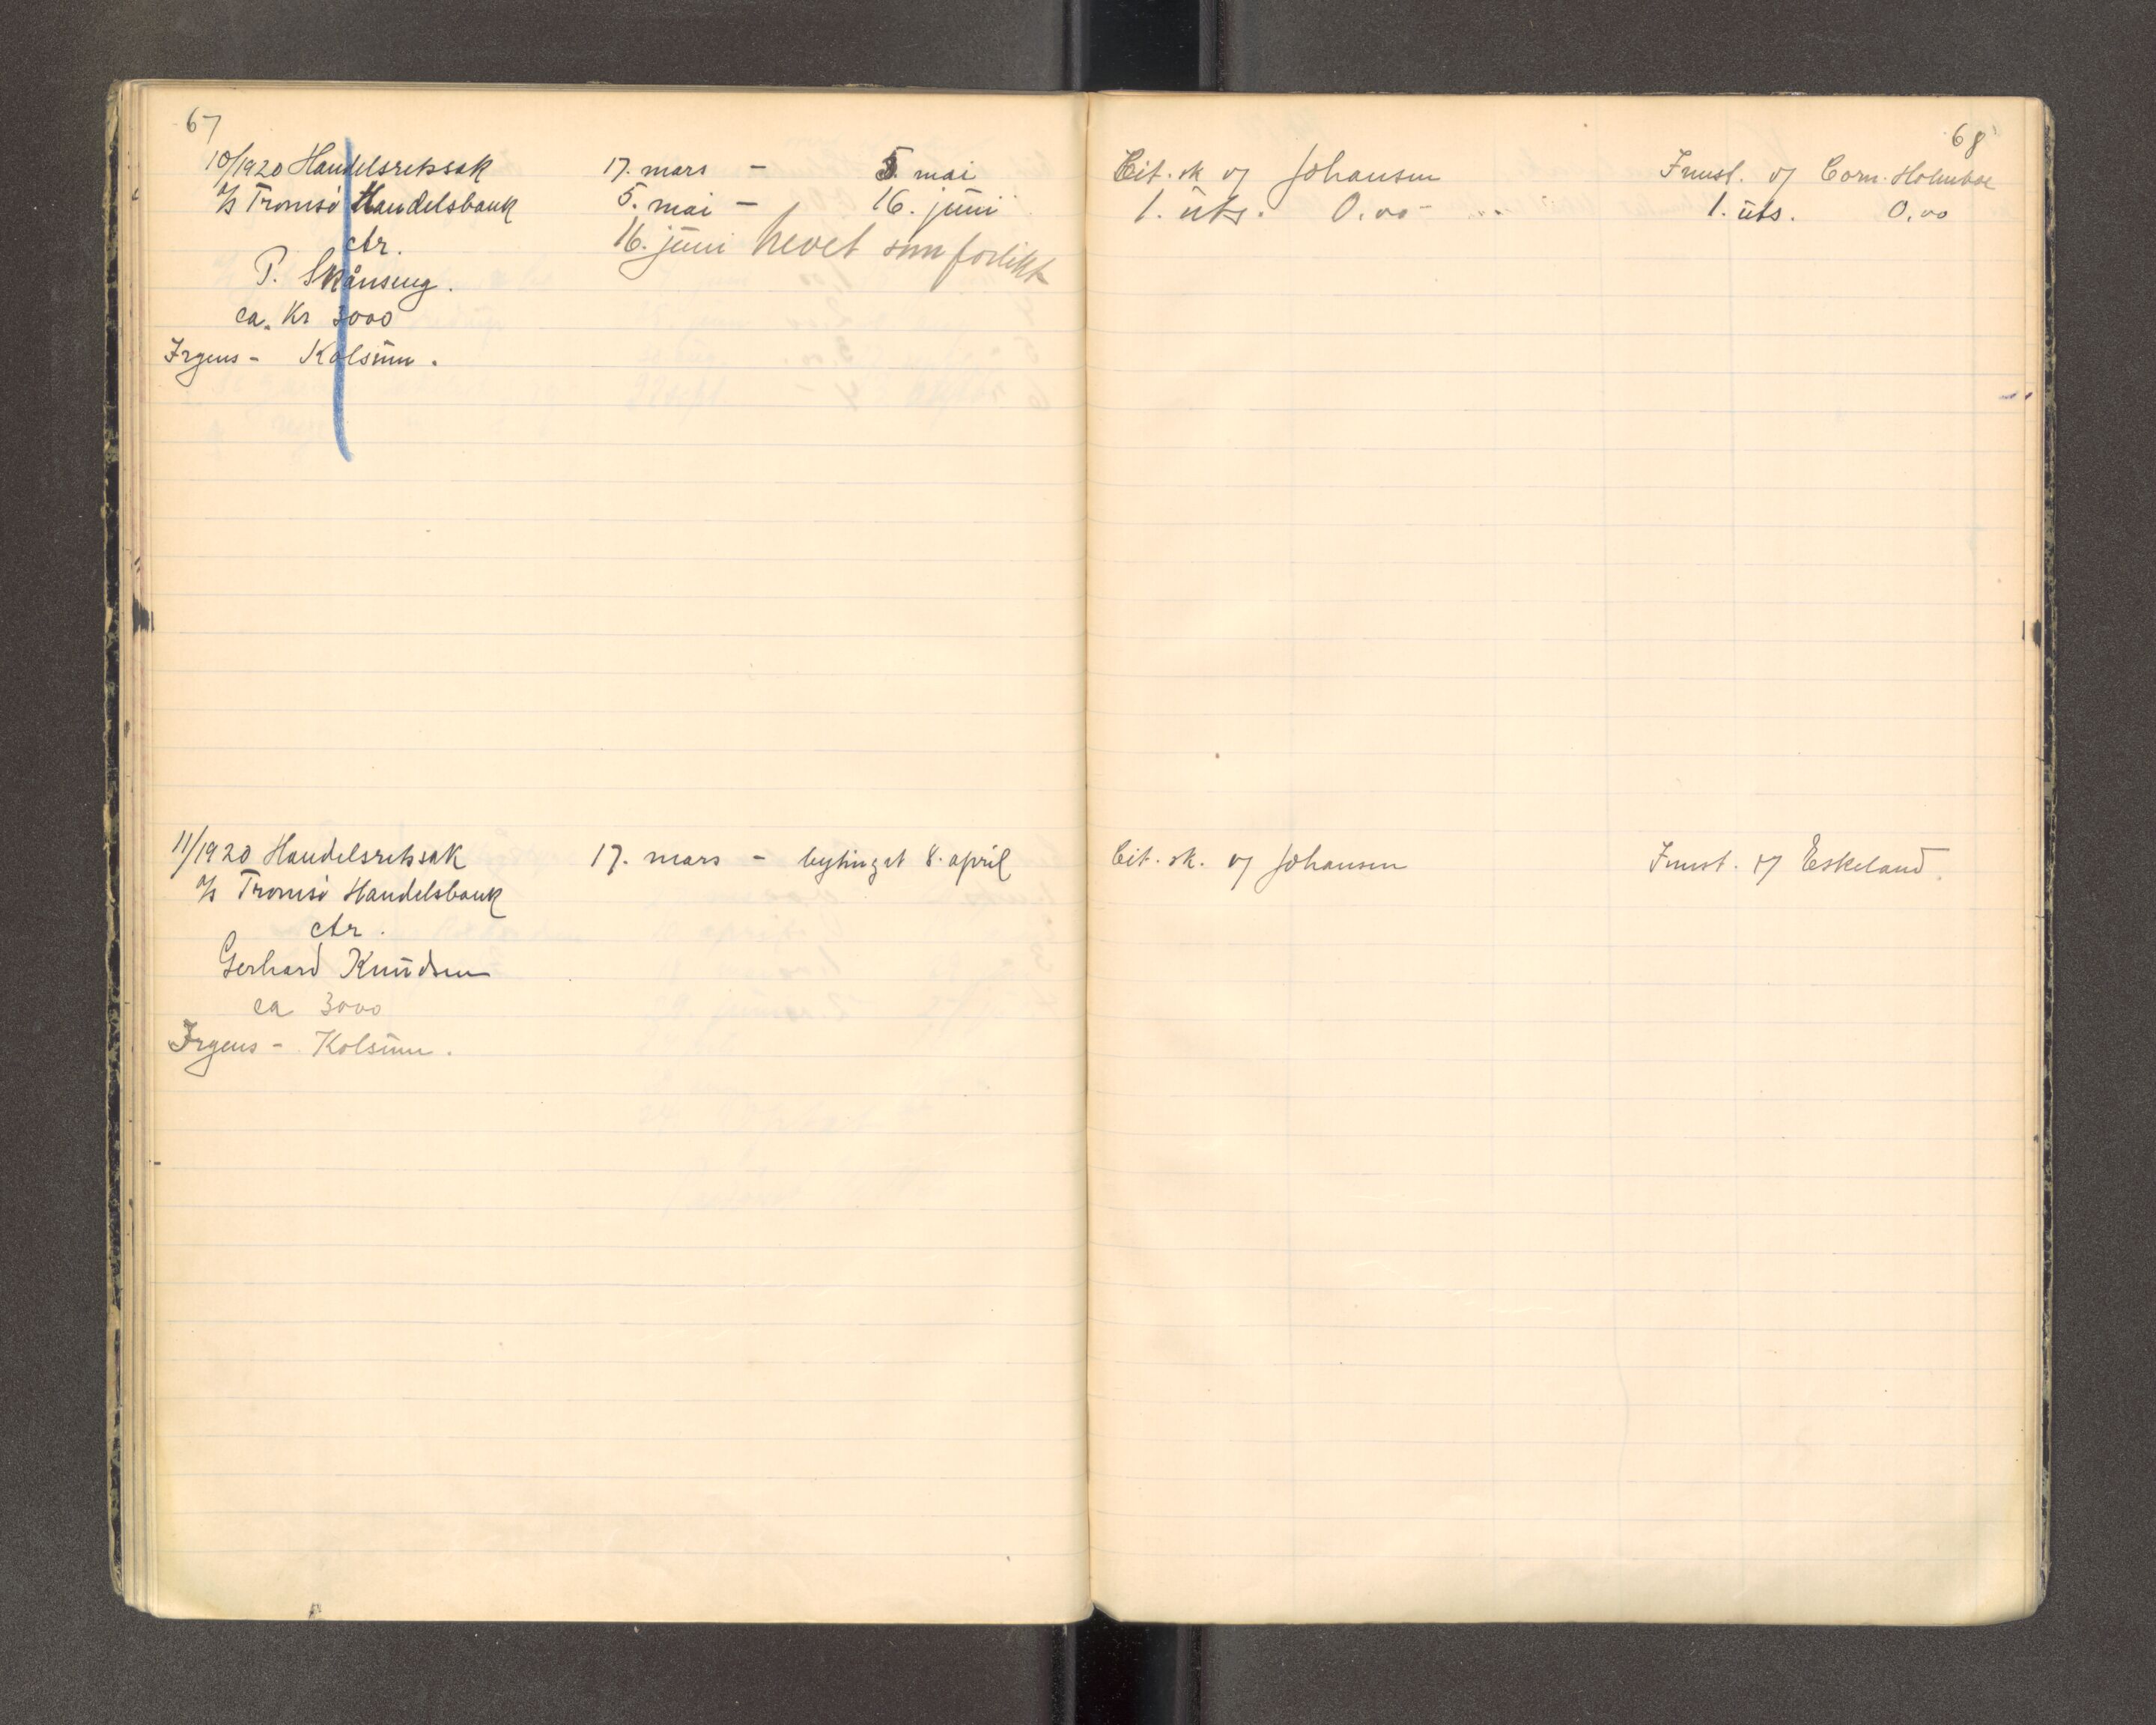 67
10/1920 Handelsretssak
A/S Tromsö Handelsbank
ctr.
P. Skånseng.
ca. Kr 3000
Irgens - Kolsum.
17. mars - 5. mai
5. mai - 16. juni
16. juni hevet som forlikt
11/1920 Handelsretssak
A/S Tromsö Handelsbank
ctr.
Gerhard Knudsen
ca 3000
Irgens - Kolsum.
17. mars - bytinget 8. april
68
Cit. sk of Johansen
Innst. of Corn. Holmboe
1. uts. 0.00
1. uts. 0.00
Cit. sk. of Johansen
Innst. of Eskeland.